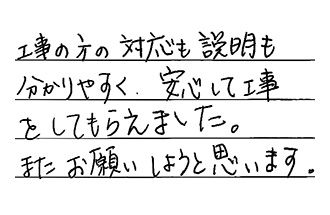 工事の方の対応も説明も
分かりやすく、安心して工事
をしてもらえました。
またお願いしようと思います。